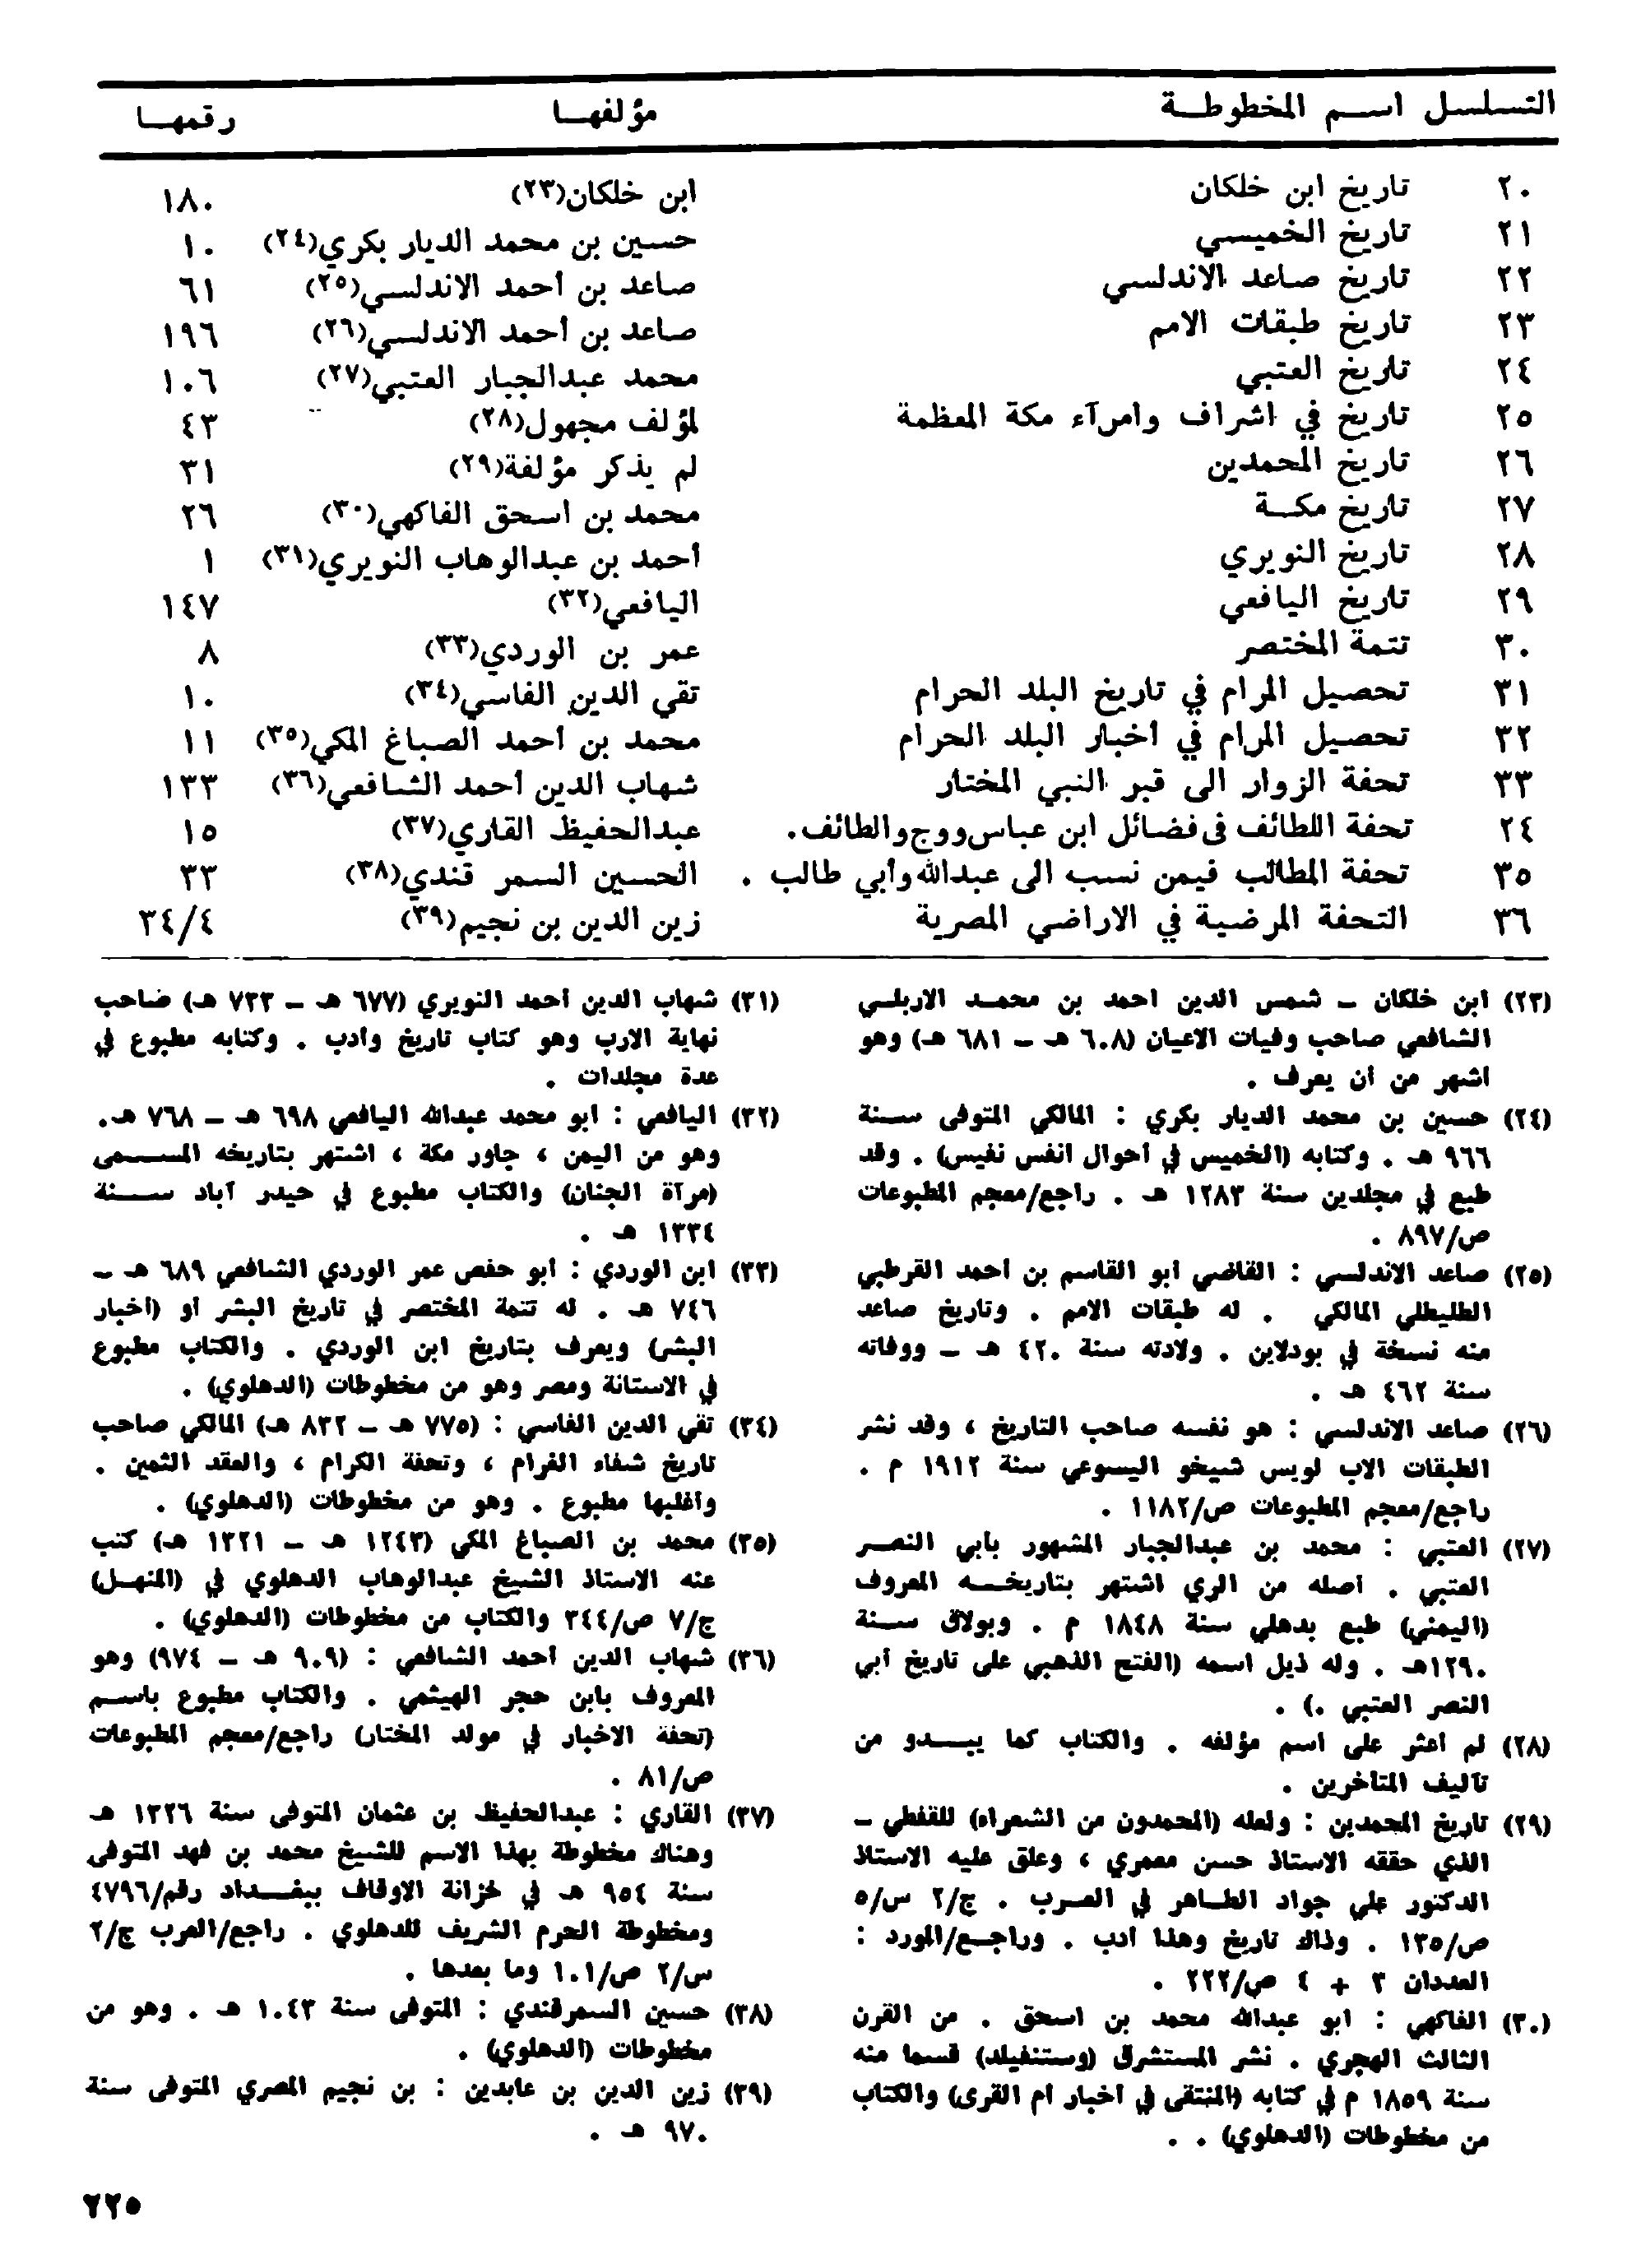 التسلسل اسم المخطوطة مؤلفها رقمها
٢٠ تاريخ ابن خلكان ابن خلكان(٢٣) ١٨٠
٢١ تاريخ الخميسي حسين بن محمد الديار بكري(٢٤) ١٠
٢٢ تاريخ صاعد الاندلسي صاعد بن أحمد الاندلسي(٢٥) ٦١
٢٣ تاريخ طبقات الامم صاعد بن أحمد الاندلسي(٢٦) ١٩٦
٢٤ تاريخ العتبي محمد عبدالجبار العتبي(٢٧) ١٠٦
٢٥ تاريخ في اشراف وامرآء مكة المعظمة لمؤلف مجهول(٢٨) ٤٣
٢٦ تاريخ المحمدين لم يذكر مؤلفة(٢٩) ٣١
٢٧ تاريخ مكة محمد بن اسحق الفاكهي(٣٠) ٢٦
٢٨ تاريخ النويري أحمد بن عبدالوهاب النويري(٣١) ١
٢٩ تاريخ اليافعي اليافعي(٣٢) ١٤٧
٣٠ تتمة المختصر عمر بن الوردي(٣٣) ٨
٣١ تحصيل المرام في تاريخ البلد الحرام تقي الدين الفاسي(٣٤) ١٠
٣٢ تحصيل المرام في أخبار البلد الحرام محمد بن أحمد الصباغ المكي(٣٥) ١١
٣٣ تحفة الزوار الى قبر النبي المختار شهاب الدين أحمد الشافعي(٣٦) ١٣٣
٢٤ تحفة اللطائف فى فضائل ابن عباس ووج والطائف. عبدالحفيظ القاري(٣٧) ١٥
٣٥ تحفة المطالب فيمن نسب الى عبدالله وأبي طالب . الحسين السمر قندي(٣٨) ٣٣
٣٦ التحفة المرضية في الاراضي المصرية زين الدين بن نجيم(٣٩) ٣٤/٤
(٢٣) ابن خلكان ــ شمس الدين احمد بن محمد الاربلي
الشافعي صاحب وفيات الاعيان (٦٠٨ هـ ــ ٦٨١ هـ) وهو
اشهر من أن يعرف .
(٢٤) حسين بن محمد الديار بكري : المالكي المتوفى سنة
٩٦٦ هـ . وكتابه (الخميس في أحوال انفس نفيس) . وقد
طبع في مجلدين سنة ١٢٨٣ هـ . راجع/معجم المطبوعات
ص/٨٩٧ .
(٢٥) صاعد الاندلسي : القاضي أبو القاسم بن أحمد القرطبي
الطليطلي المالكي . له طبقات الامم . وتاريخ صاعد
منه نسخة في بودلاين . ولادته سنة ٤٢٠ هـ ــ ووفاته
سنة ٤٦٢ هـ .
(٢٦) صاعد الاندلسي : هو نفسه صاحب التاريخ ، وقد نشر
الطبقات الاب لويس شيخو اليسوعي سنة ١٩١٢ م .
راجع/معجم المطبوعات ص/١١٨٢ .
(٢٧) العتبي : محمد بن عبدالجبار المشهور بأبي النصر
العتبي . أصله من الري اشتهر بتاريخه المعروف
(اليمني) طبع بدهلي سنة ١٨٤٨ م . وبولاق سنة
١٢٩٠هـ . وله ذيل اسمه (الفتح الذهبي على تاريخ أبي
النصر العتبي .) .
(٢٨) لم أعثر على اسم مؤلفه . والكتاب كما يبدو من
تآليف المتأخرين .
(٢٩) تاريخ المحمدين : ولعله (المحمدون من الشعراء) للقفطي ــ
الذي حققه الاستاذ حسن معمري ، وعلق عليه الاستاذ
الدكتور علي جواد الطاهر في العرب . ج/٢ س/٥
ص/١٣٥ . وذاك تاريخ وهذا أدب . وراجع/المورد :
العددان ٣ + ٤ ص/٢٢٢ .
(٣٠) الفاكهي : ابو عبدالله محمد بن اسحق . من القرن
الثالث الهجري . نشر المستشرق (وستنفيلد) قسما منه
سنة ١٨٥٩ م في كتابه (المنتقى في أخبار أم القرى) والكتاب
من مخطوطات (الدهلوي) . .
(٣١) شهاب الدين أحمد النويري (٦٧٧ هـ ــ ٧٣٣ هـ) صاحب
نهاية الارب وهو كتاب تاريخ وأدب . وكتابه مطبوع في
عدة مجلدات .
(٣٢) اليافعي : ابو محمد عبدالله اليافعي ٦٩٨ هـ ــ ٧٦٨ هـ.
وهو من اليمن ، جاور مكة ، اشتهر بتاريخه المسمى
(مرآة الجنان) والكتاب مطبوع في حيدر آباد سنة
١٣٣٤ هـ .
(٣٣) ابن الوردي : أبو حفص عمر الوردي الشافعي ٦٨٩ هـ ــ
٧٤٦ هـ . له تتمة المختصر في تاريخ البشر أو (أخبار
البشر) ويعرف بتاريخ ابن الوردي . والكتاب مطبوع
في الاستانة ومصر وهو من مخطوطات (الدهلوي) .
(٣٤) تقي الدين الفاسي : (٧٧٥ هـ ــ ٨٣٢ هـ) المالكي صاحب
تاريخ شفاء الغرام ، وتحفة الكرام ، والعقد الثمين .
وأغلبها مطبوع . وهو من مخطوطات (الدهلوي) .
(٣٥) محمد بن الصباغ المكي (١٢٤٣ هـ ــ ١٣٢١ هـ) كتب
عنه الاستاذ الشيخ عبدالوهاب الدهلوي في (المنهل)
ج/٧ ص/٣٤٤ والكتاب من مخطوطات (الدهلوي) .
(٣٦) شهاب الدين أحمد الشافعي : (٩٠٩ هـ ــ ٩٧٤) وهو
المعروف بابن حجر الهيثمي . والكتاب مطبوع باسم
(تحفة الاخبار في مولد المختار) راجع/معجم المطبوعات
ص/٨١ .
(٣٧) القاري : عبدالحفيظ بن عثمان المتوفى سنة ١٣٢٦ هـ
وهناك مخطوطة بهذا الاسم للشيخ محمد بن فهد المتوفى
سنة ٩٥٤ هـ في خزانة الاوقاف ببغداد رقم/٤٧٩٦
ومخطوطة الحرم الشريف للدهلوي . راجع/العرب ج/٢
س/٢ ص/١٠١ وما بعدها .
(٣٨) حسين السمرقندي : المتوفى سنة ١٠٤٣ هـ . وهو من
مخطوطات (الدهلوي) .
(٣٩) زين الدين بن عابدين : بن نجيم المصري المتوفى سنة
٩٧٠ هـ .
٢٢٥